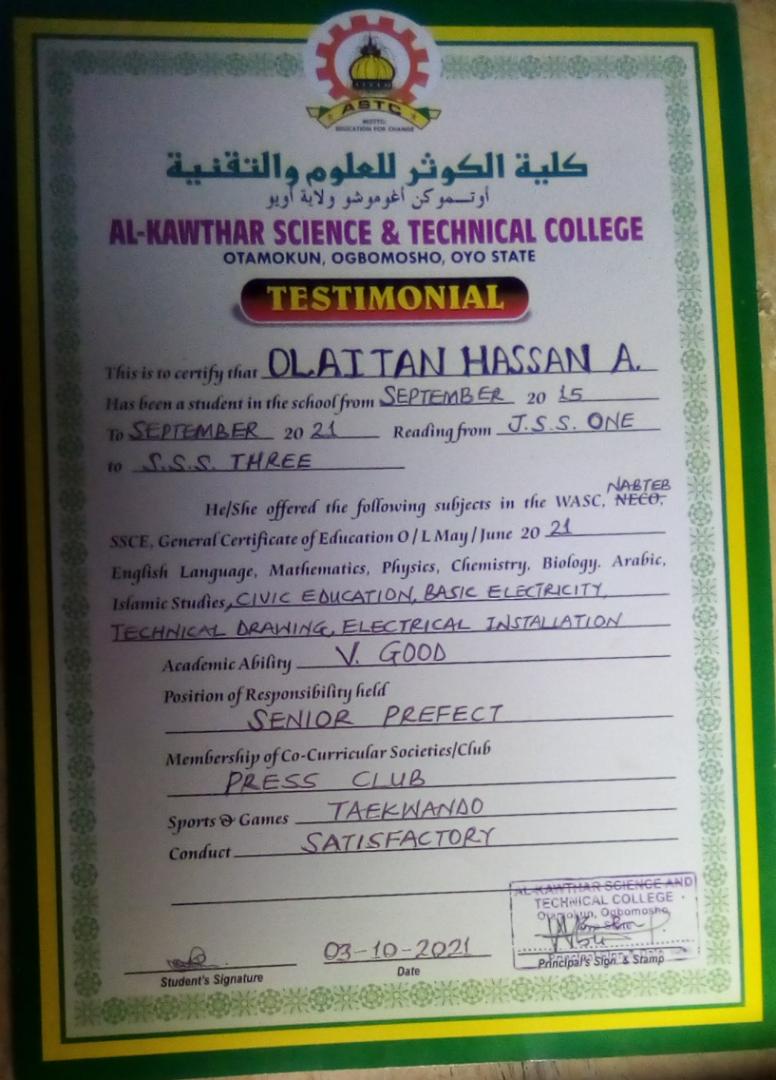 ASTC
MOTTO:
EDUCATION FOR CHANGE
كلية الكوثر للعلوم والتقنية
أوتـــموكن أغوموشو ولاية أويو
AL-KAWTHAR SCIENCE & TECHNICAL COLLEGE
OTAMOKUN, OGBOMOSHO, OYO STATE
TESTIMONIAL
This is to certify that OLAITAN HASSAN A.
Has been a student in the school from SEPTEMBER 20 15
To SEPTEMBER 20 21 Reading from J.S.S. ONE
to S.S.S. THREE
NABTEB
He/She offered the following subjects in the WASC, NECO,
SSCE, General Certificate of Education O/L May/June 20 21
English Language, Mathematics, Physics, Chemistry, Biology. Arabic,
Islamic Studies, CIVIC EDUCATION, BASIC ELECTRICITY,
TECHNICAL DRAWING, ELECTRICAL INSTALLATION
Academic Ability V. GOOD
Position of Responsibility held
SENIOR PREFECT
Membership of Co-Curricular Societies/Club
PRESS CLUB
Sports & Games TAEKWANDO
Conduct SATISFACTORY
AL-KAWTHAR SCIENCE AND
TECHNICAL COLLEGE
Otamokun, Ogbomosho
03-10-2021
Student's Signature Date Principal's Sign. & Stamp